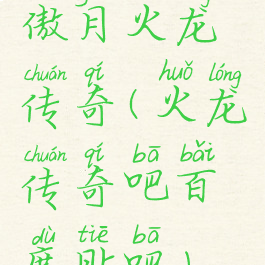 傲月火龙
chuán qí huǒ lóng
传奇(火龙
chuán qí bā bǎi
传奇吧百
dù tiē bā
度贴吧)